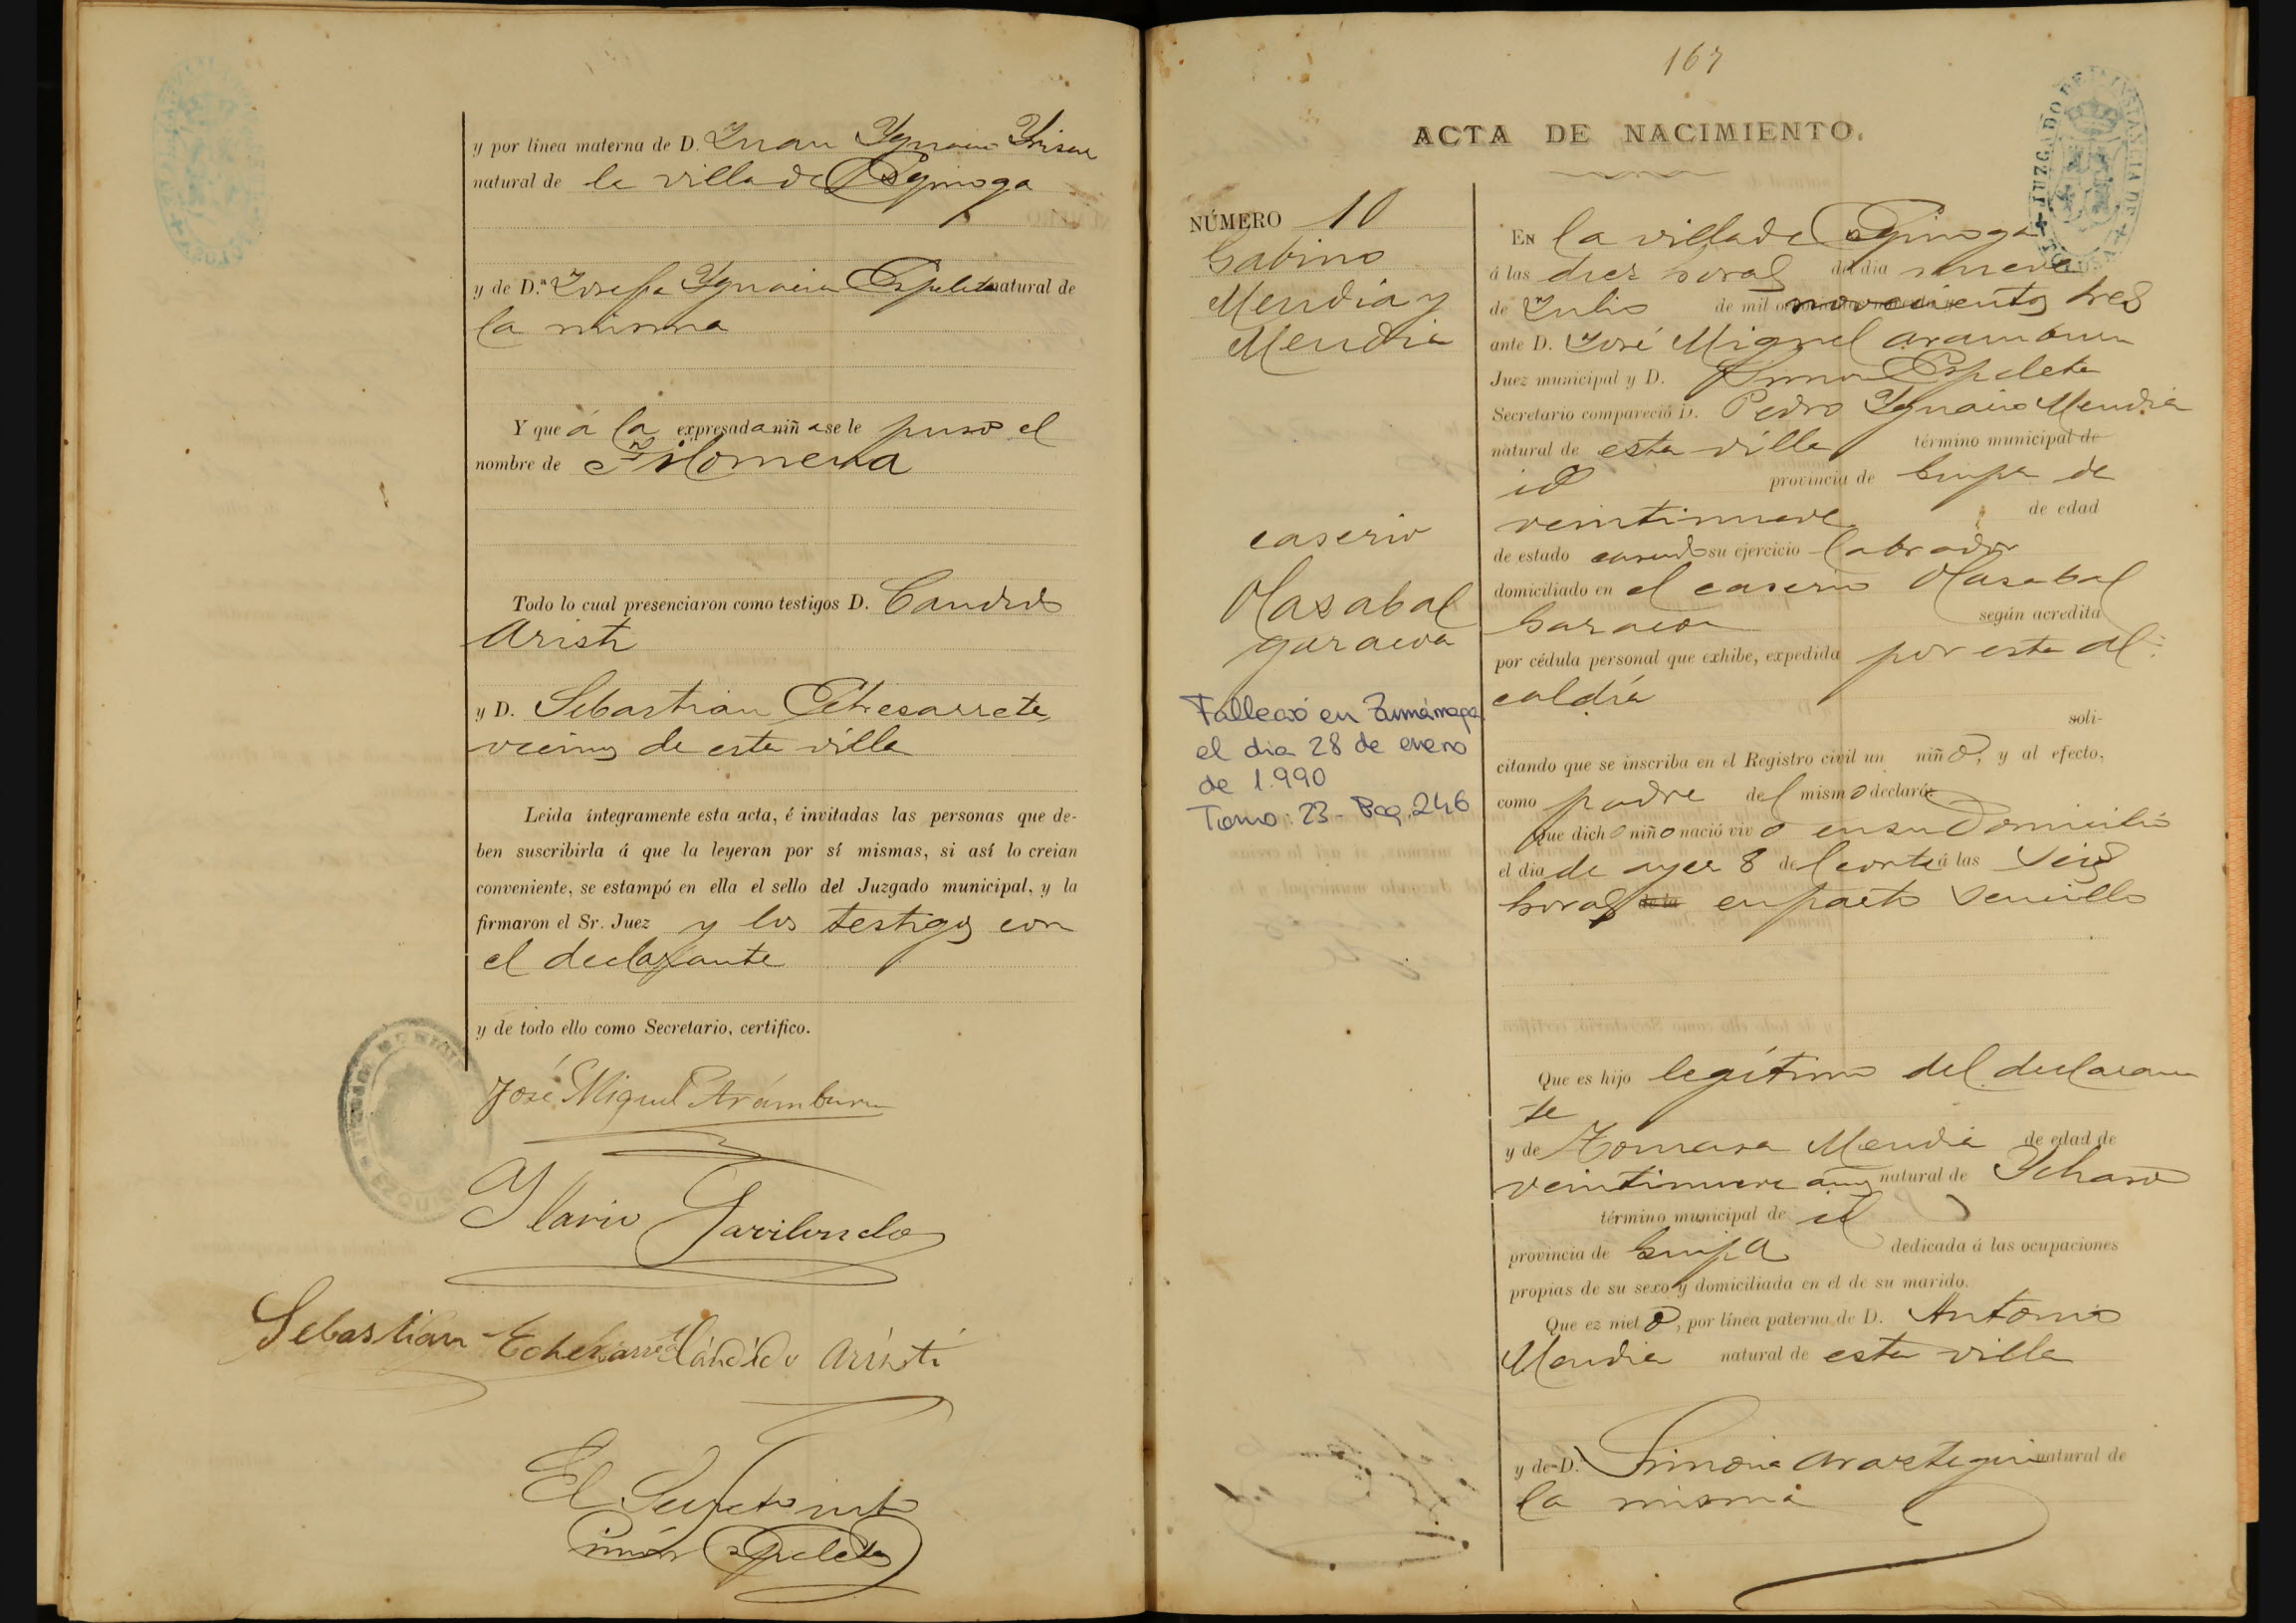 y por linea materna de D. Juan Ygnacio Yrizar
natural de la villa de Ezquioga
y de D.ª Josefa Ygnacia Ezpeleta natural de
la misma
Y que á la expresada niña se le puso el
nombre de Filomena
Todo lo cual presenciaron como testigos D. Candido
Aristi
y D. Sebastian Echezarreta
vecinos de esta villa
Leida íntegramente esta acta, é invitadas las personas que de-
ben suscribirla á que la leyeran por sí mismas, si así lo creian
conveniente, se estampó en ella el sello del Juzgado municipal, y la
firmaron el Sr. Juez y los testigos con
el declarante
y de todo ello como Secretario, certifico.
José Miguel Arámburu
Sebastian Echezarreta Cándido Aristi
El Secretario
Simón Ezpeleta
167
ACTA DE NACIMIENTO.
JUZGADO DE 1.ª INSTANCIA DE
NÚMERO 10
Gabino
Mendia y
Mendia
caserio
Olazabal
garaicoa
Falleció en Zumárraga
el dia 28 de enero
de 1.990
Tomo: 23 - Pag. 246
EN la villa de Ezquioga
á las diez horas del dia nueve
de Julio de mil novecientos tres
ante D. José Miguel Aramburu
Juez municipal y D. Simon Ezpeleta
Secretario compareció D. Pedro Ygnacio Mendia
natural de esta villa término municipal de
id provincia de Guipa de
veintinueve de edad
de estado casado su ejercicio labrador
domiciliado en el caserio Olazabal
Garaicoa según acredita
por cédula personal que exhibe, expedida por esta Al-
caldía
soli-
citando que se inscriba en el Registro civil un niño, y al efecto,
como padre del mismo declaró:
Que dicho niño nació vivo en su domicilio
el dia de ayer 8 del corte á las seis
horas de la en parto sencillo
Que es hijo legítimo del declaran
te
y de Tomasa Mendia de edad de
veintinueve años natural de Ychaso
término municipal de id
provincia de Guipa dedicada á las ocupaciones
propias de su sexo y domiciliada en el de su marido.
Que es nieto, por línea paterna de D. Antonio
Mendia natural de esta villa
y de D.ª Simona Aroztegui natural de
la misma